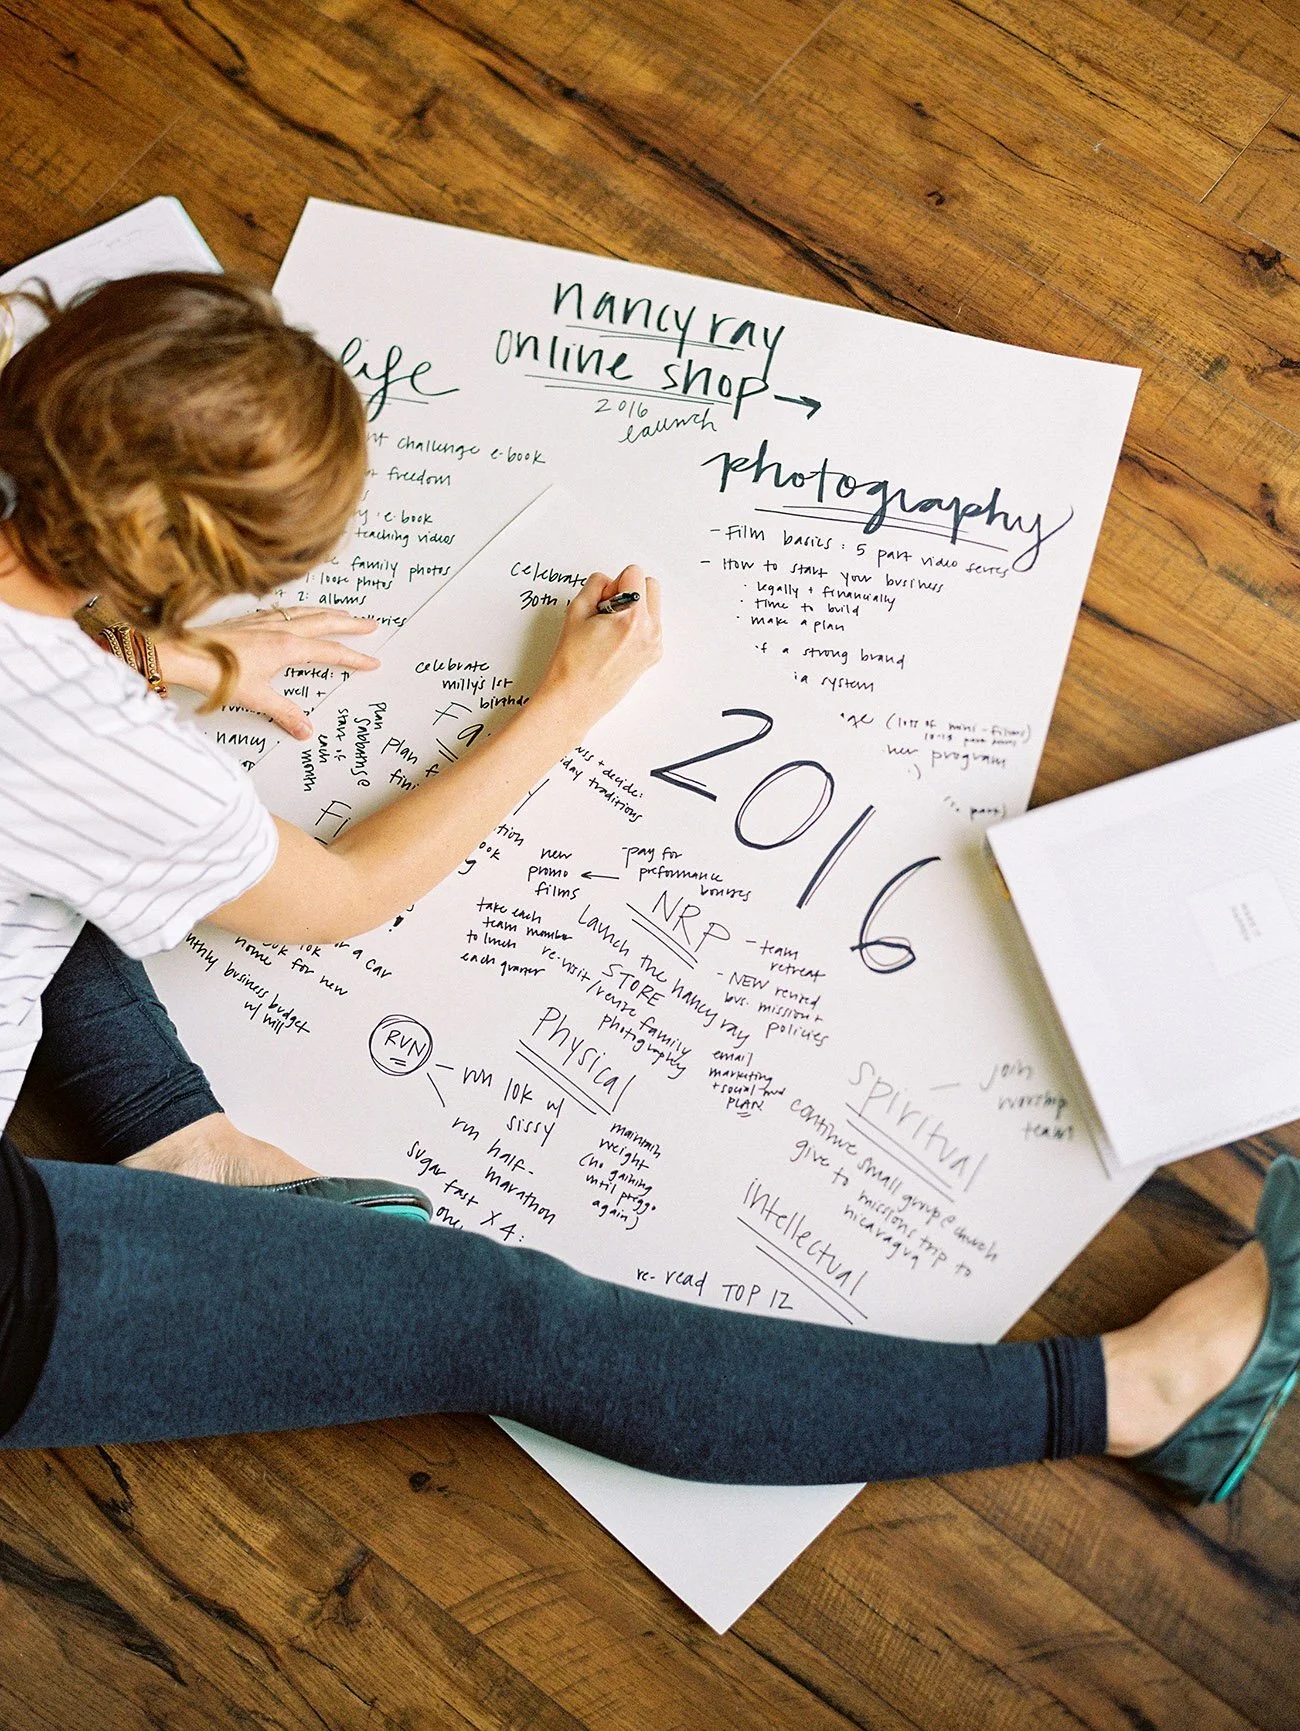 nancy ray
online shop →
2016
launch
life
challenge e-book
freedom
e-book
teaching videos
family photos
1: loose photos
2: albums
photography
- Film basics: 5 part video series
- How to start your business
· legally + financially
· time to build
· make a plan
a strong brand
a system
(lots of mini-films)
new program
:)
celebrate
30th
celebrate
milly's 1st
birthday
started:
well +
nancy
plan
sabbath @
start of
each
month
plan
+ decide:
day traditions
2016
new
promo
films
← - pay for
preformance
bonuses
NRP
take each
team member
to lunch
each quarter
Launch the nancy ray
STORE
re-visit/revise family
photography
- team
retreat
- NEW revised
bus. mission +
policies
email
marketing
+ social med
PLAN
a car
home for new
business budget
w/ will
RUN
run 10k w/
sissy
run half-
marathon
sugar fast x 4:
one
Physical
maintain
weight
(no gaining
until preggo
again)
spiritual
join
worship
team
continue small group @ church
give to missions trip to
nicaragua
intellectual
re-read TOP 12